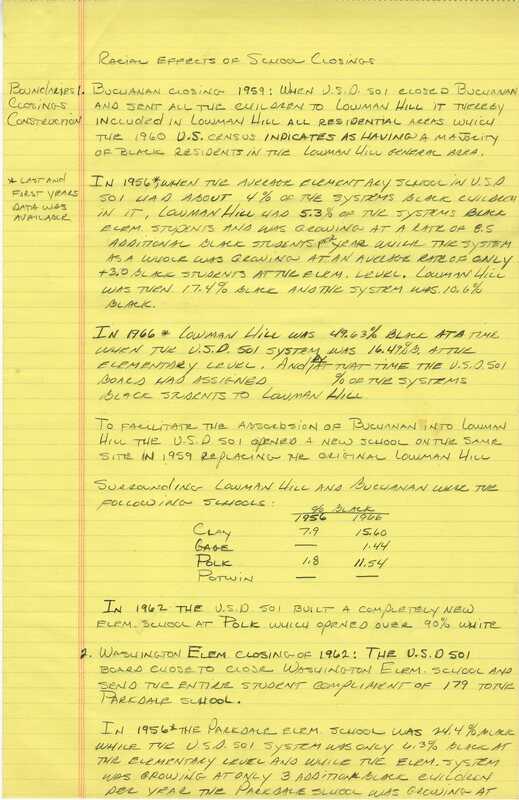 Racial Effects of School Closings
Boundaries
Closings
Construction
1. Buchanan closing 1959: When U.S.D. 501 closed Buchanan
and sent all the children to Lowman Hill it thereby
included in Lowman Hill all residential areas which
the 1960 U.S. census indicates as having a majority
of black residents in the Lowman Hill general area.
* Last and
first years
data was
available
In 1956*, when the average elementary school in U.S.D
501 had about 4% of the systems black children
in it, Lowman Hill had 5.3% of the systems black
elem. students and was growing at a rate of 8.5
additional black students per year while the system
as a whole was growing at an average rate of only
+3.0 black students at the elem. level. Lowman Hill
was then 17.4% black and the system was 10.6%
black.
In 1966* Lowman Hill was 49.63% black at a time
when the U.S.D. 501 system was 16.4% B. at the
elementary level. And by that time the U.S.D 501
board had assigned % of the systems
black students to Lowman Hill.
To facilitate the absorbsion of Buchanan into Lowman
Hill the U.S.D 501 opened a new school on the same
site in 1959 replacing the original Lowman Hill
Surrounding Lowman Hill and Buchanan were the
following schools:
% Black
1956 1966
Clay 7.9 15.60
Gage — 1.44
Polk 1.8 11.54
Potwin — —
In 1962 the U.S.D 501 built a completely new
elem. school at Polk which opened over 90% white
2. Washington Elem closing of 1962: The U.S.D 501
board chose to close Washington Elem. school and
send the entire student compliment of 179 to the
Parkdale school.
In 1956* the Parkdale elem. school was 24.4% black
while the U.S.D. 501 system was only 6.3% black at
the elementary level and while the elem. system
was growing at only 3 addition black children
per year the Parkdale school was growing at